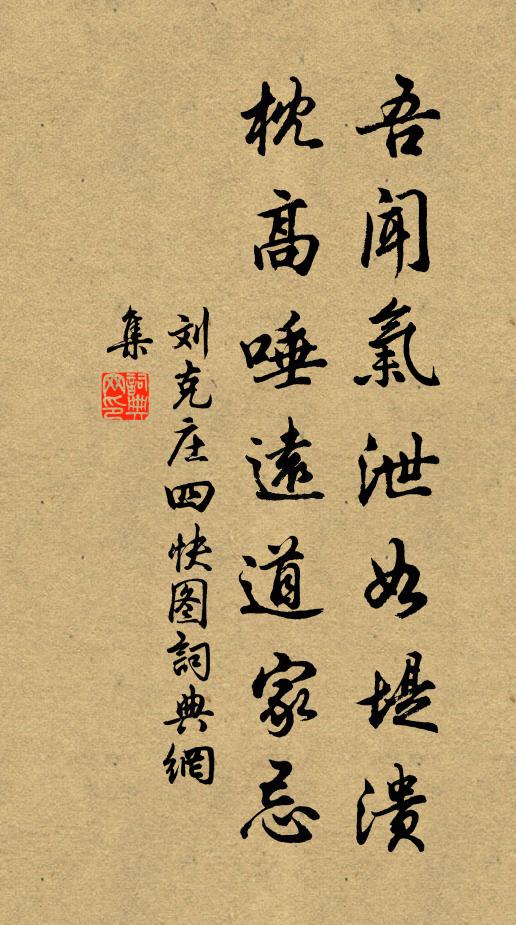 吾聞氣泄如堤潰
枕高唾遠道家忌
刘克庄四快图詞典網
集
詞典